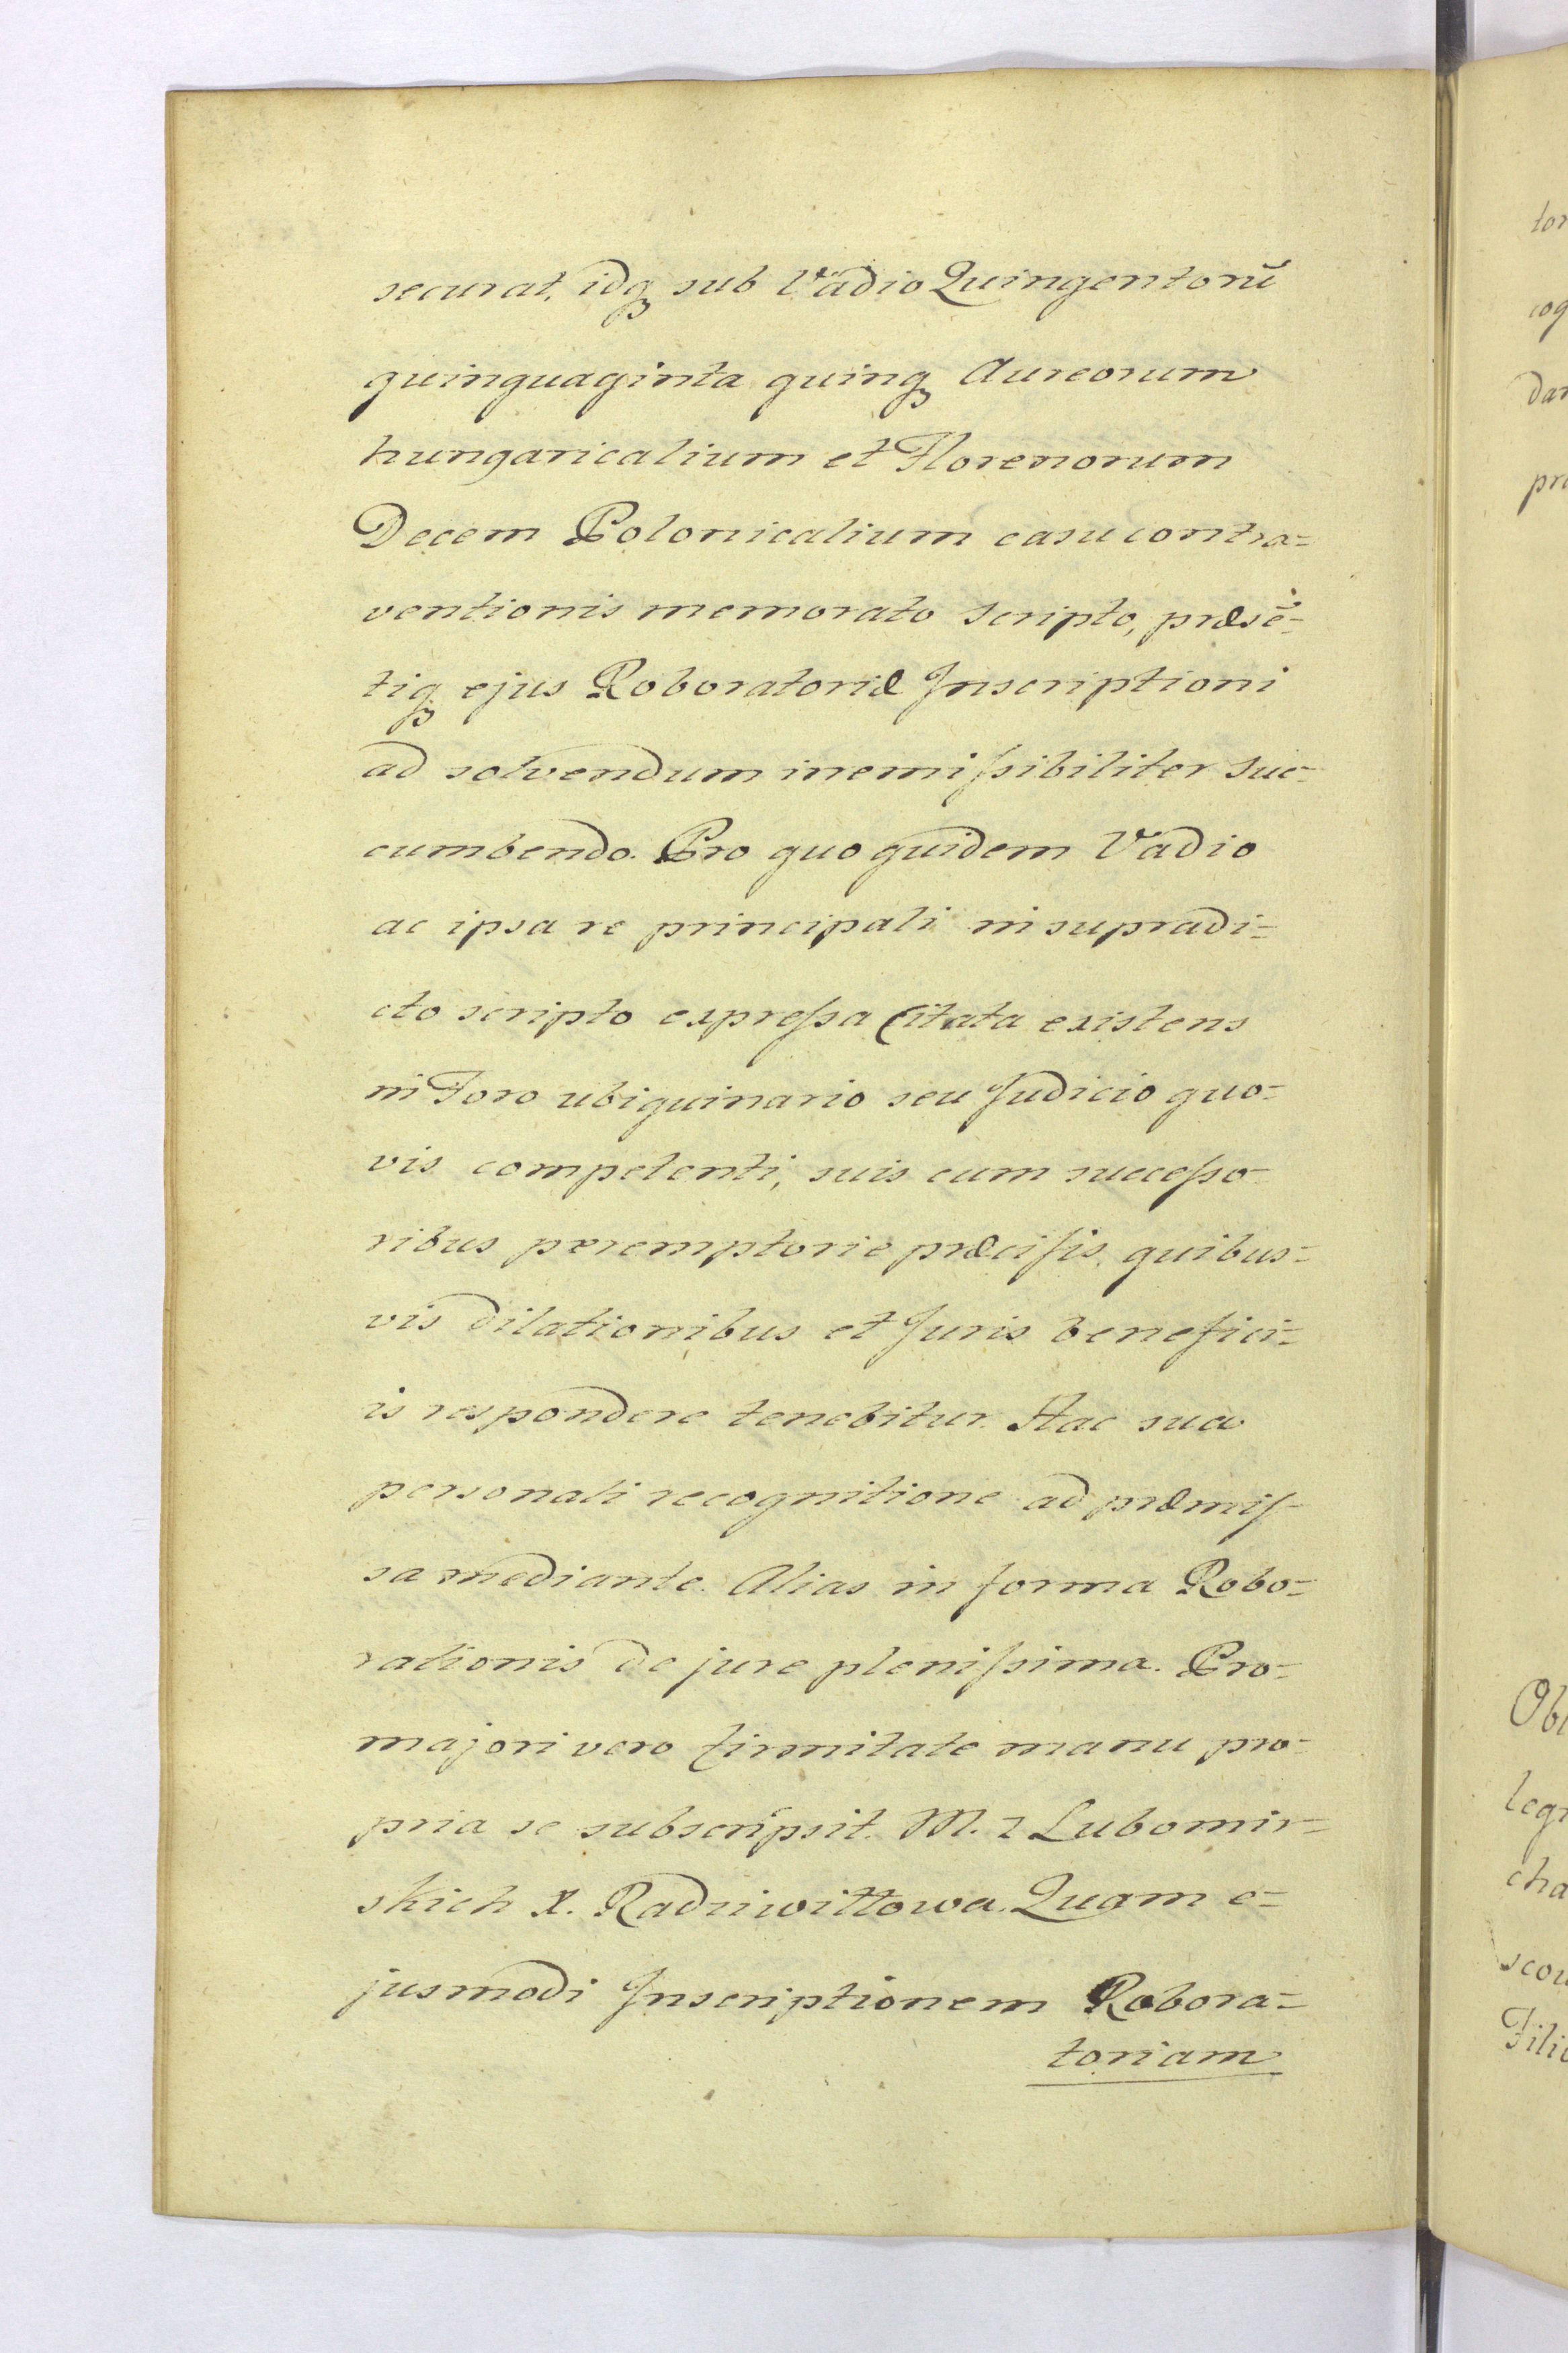 securat, idq₃ sub Vadio Quingentorū
quinquaginta quinq₃ Aureorum
hungaricalium et Florenorum
Decem Polonicalium casu contra=
ventionis memorato scripto, præsē=
tiq₃ ejus Roboratoriæ Inscriptioni
ad solvendum inemiſsibiliter suc=
cumbendo. Pro quo quidem Vadio
ac ipsa re principali in supradi=
cto scripto expreſsa Citata existens
in Foro ubiquinario seu Judicio quo=
vis competenti, suis cum succeſso=
ribus peremptorie præciſis, quibus=
vis dilationibus et Juris benefici=
is respondere tenebitur. Hac sua
personali recognitione ad præmiſ=
sa mediante. Alias in forma Robo=
rationis de jure pleniſsima. Pro=
majori vero firmitate manu pro=
pria se subscripsit. M. z Lubomir=
skich X. Radziwiłłowa. Quam e=
jusmodi Inscriptionem Robora=
toriam
tor
cog
dar
pra
Obl
legi
cha
scou
Filio